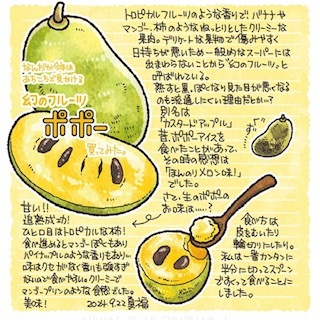 トロピカルフルーツのような香りで!! バナナや
マンゴー、柿のようなねっとりとしたクリーミーな
果肉。デリケートな果物で傷みやすく
日持ちが悪いため一般的なスーパーには
出まわらないことから“幻のフルーツ”と
呼ばれている。
熟すと黒っぽくなり見た目が悪くなる
のも流通しにくい理由だとか…?
別名は
「カスタードアップル」
昔、ポポーアイスを
食べたことがあって、
その時の感想は
「ほんのりメロン味!」
でした。
さて、生のポポーの
お味は……?
なんだか今年は
あちこちで見かける
幻のフルーツ
ポポー
買ってみた。
甘い!!
追熟成功!
ひと口目はトロピカルな柿!
食べ進めるとマンゴーぽくもあり
パイナップルのような香りもあり…
味はクセがなく香りも強すぎ
ないので食べやすい。クリーミーで
マンゴープリンのような食感でした。
美味!
2024.9.22
食べ方は
皮をむいたり
輪切りにしたり。
私は一番カンタンに
半分に切ってスプーン
ですくって食べることに
しました。